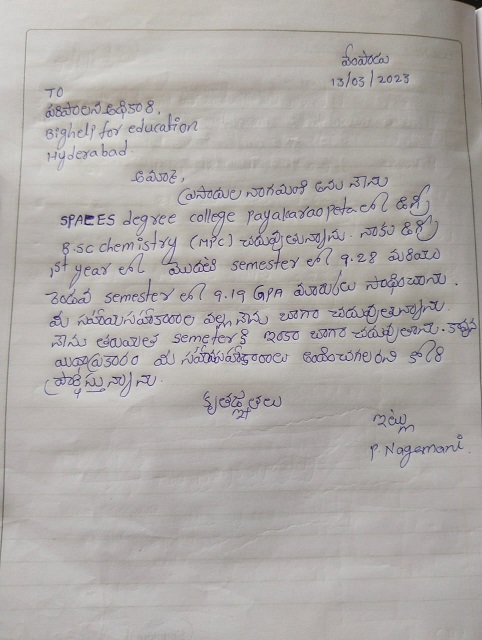 వేంపాడు
13/03/2023
TO
పరిపాలన అధికారి,
Bighelp for education
Hyderabad.
అమ్మా,
ప్రసాదుల నాగమణి అను నేను
SPACES degree college Payakaraopeta లో డిగ్రీ
B.sc chemistry (MPC) చదువుతున్నాను. నాకు డిగ్రీ
1st year లో మొదటి semester లో 9.28 మరియు
రెండవ semester లో 9.19 GPA మార్కులు సాధించాను.
మీ సహాయసహకారాల వల్ల నేను బాగా చదువుతున్నాను.
నేను తరువాత semeter కి ఇంకా బాగా చదువుతాను. కావున
యధాప్రకారం మీ సహాయసహకారాలు అందించగలరని కోరి
ప్రార్థిస్తున్నాను.
కృతజ్ఞతలు
ఇట్లు
P. Nagamani.